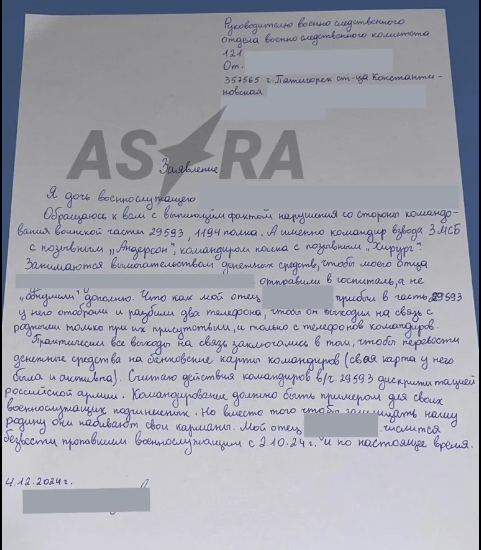 Руководителю военно следственного
отдела военно следственного комитета
121
От.
357565 г. Пятигорск ст-ца Константи-
новская
ASTRA
Заявление.
Я дочь военнослужащего
Обращаюсь к вам с вопиющим фактом нарушения со стороны командо-
вания воинской части 29593, 1194 полка. А именно командир взвода 3 МСБ
с позывным "Андерсон", командиром полка с позывным "Хирург".
Занимаются вымогательством денежных средств, чтобы моего отца
отправили в госпиталь, а не
"обнулили" дословно. Что как мой отец прибыл в часть 29593
у него отобрали и разбили два телефона, чтобы он выходил на связь с
родными только при их присутствии, и только с телефонов командиров.
Практически все выходы на связь заключались в том, чтобы перевести
денежные средства на банковские карты командиров (своя карта у него
была и активна). Считаю действия командиров в/ч 29593 дискридитацией
российской армии. Командование должно быть примером для своих
военнослужащих подчиненных. Но вместо того чтобы защищать нашу
родину они набивают свои карманы. Мой отец числится
безвести пропавшим военнослужащим с 2.10.24г. и по настоящее время.
4.12.2024г.